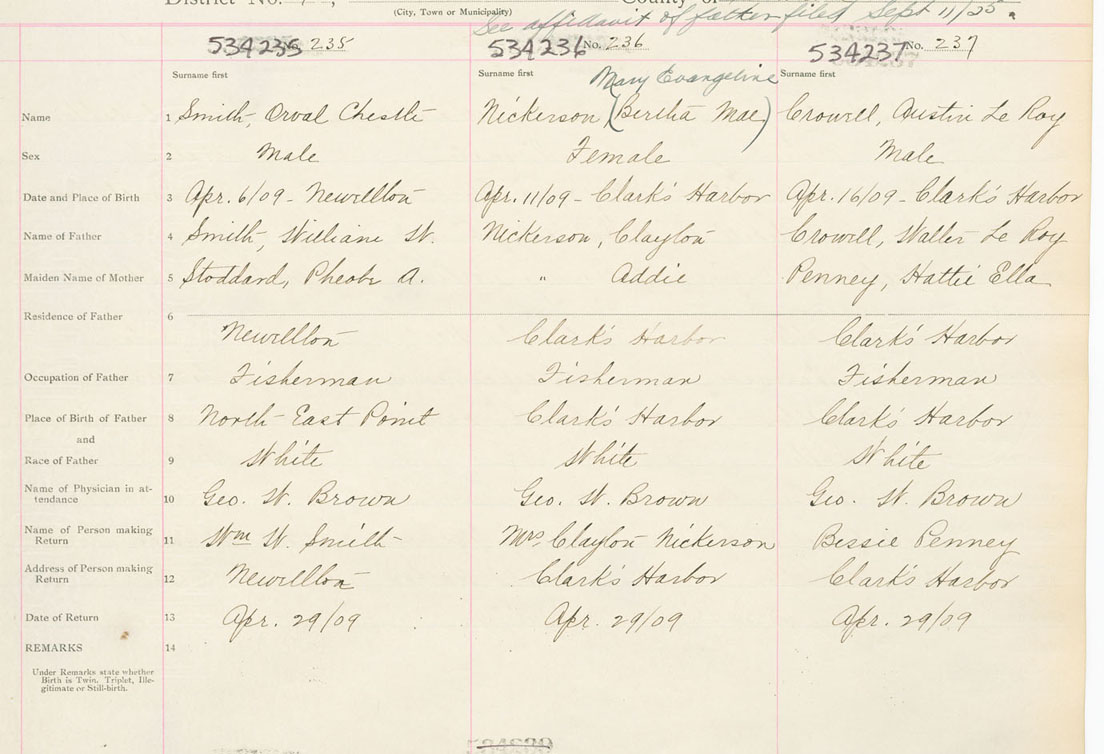 District No.
County of
(City, Town or Municipality)
See affidavit of father filed Sept 11/25.
534235 No. 235 534236 No. 236 534237 No. 237
Surname first Surname first Surname first
Mary Evangeline
Name 1 Smith, Orval Chestle Nickerson (Bertha Mae) Crowell, Austin Le Roy
Sex 2 Male Female Male
Date and Place of Birth 3 Apr. 6/09 - Newellton Apr. 11/09 - Clark's Harbor Apr. 16/09 - Clark's Harbor
Name of Father 4 Smith, William W. Nickerson, Clayton Crowell, Walter Le Roy
Maiden Name of Mother 5 Stoddard, Pheobe A. " Addie Penney, Hattie Ella
Residence of Father 6
Newellton Clark's Harbor Clark's Harbor
Occupation of Father 7 Fisherman Fisherman Fisherman
Place of Birth of Father 8 North East Point Clark's Harbor Clark's Harbor
and
Race of Father 9 White White White
Name of Physician in at-
tendance 10 Geo. W. Brown Geo. W. Brown Geo. W. Brown
Name of Person making
Return 11 Wm W. Smith Mrs. Clayton Nickerson Bessie Penney
Address of Person making
Return 12 Newellton Clark's Harbor Clark's Harbor
Date of Return 13 Apr. 29/09 Apr. 29/09 Apr. 29/09
REMARKS 14
Under Remarks state whether
Birth is Twin, Triplet, Ille-
gitimate or Still-birth.